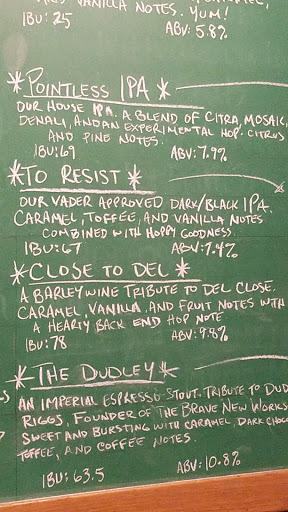 VANILLA NOTES. YUM!
IBU: 25 ABV: 5.8%
*POINTLESS IPA*
OUR HOUSE IPA. A BLEND OF CITRA, MOSAIC,
DENALI, AND AN EXPERIMENTAL HOP. CITRUS
AND PINE NOTES.
IBU: 69 ABV: 7.9%
*TO RESIST*
OUR VADER APPROVED DARK/BLACK IPA.
CARAMEL, TOFFEE, AND VANILLA NOTES
COMBINED WITH HOPPY GOODNESS.
IBU: 67 ABV: 7.4%
*CLOSE TO DEL*
A BARLEYWINE TRIBUTE TO DEL CLOSE.
CARAMEL, VANILLA, AND FRUIT NOTES WITH
A HEARTY BACK END HOP NOTE
IBU: 78 ABV: 9.8%
*THE DUDLEY*
AN IMPERIAL ESPRESSO STOUT. TRIBUTE TO DUD
RIGGS, FOUNDER OF THE BRAVE NEW WORKS
SWEET AND BURSTING WITH CARAMEL DARK CHOC
TOFFEE, AND COFFEE NOTES.
IBU: 63.5 ABV: 10.8%